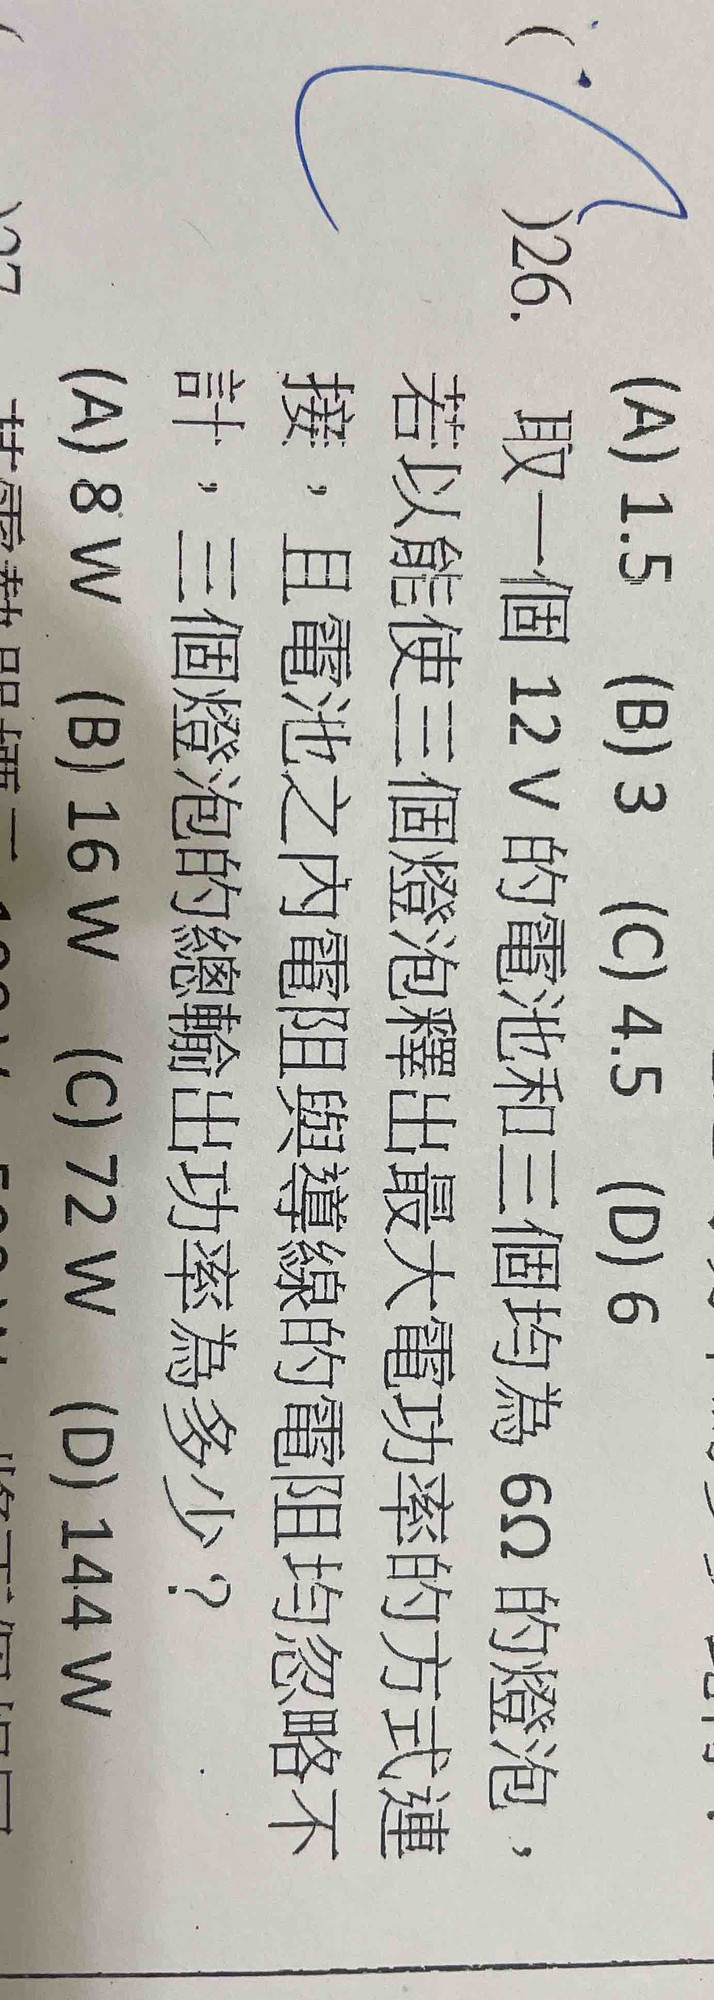 (A) 1.5 (B) 3 (C) 4.5 (D) 6
( )26. 取一個 12 V 的電池和三個均為 6Ω 的燈泡，
若以能使三個燈泡釋出最大電功率的方式連
接，且電池之內電阻與導線的電阻均忽略不
計，三個燈泡的總輸出功率為多少？
(A) 8 W (B) 16 W (C) 72 W (D) 144 W